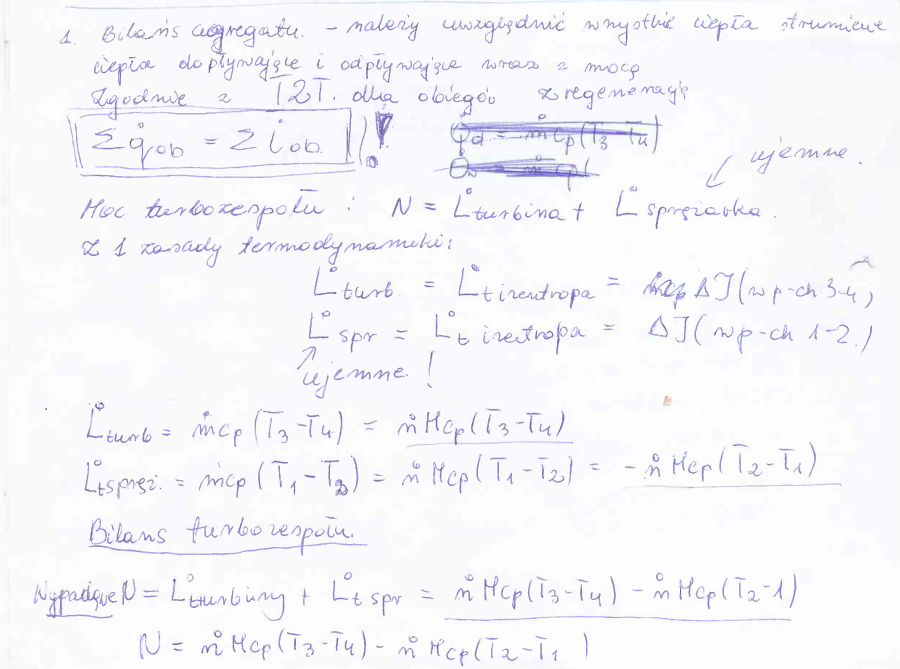 1. Bilans agregatu. – należy uwzględnić wszystkie ciepła strumienie
ciepła dopływające i odpływające wraz z mocą
Zgodnie z I ZT. dla obiegów z regeneracją
Σq̊ob = Σl̊ob. ! Q̊d = m̊cp(T3–T4)
ujemne.
Moc turbozespołu : N = L̊turbina + L̊ sprężarka.
Z 1 zasady termodynamiki:
L̊turb. = L̊t izentropa = ΔJ(wp-ch 3-4)
L̊spr = L̊t izentropa = ΔJ(wp-ch 1-2.)
ujemne !
L̊turb = m̊cp(T3–T4) = n̊Mcp(T3–T4)
L̊tspręż. = m̊cp(T1–T2) = n̊Mcp(T1–T2) = –n̊Mcp(T2–T1)
Bilans turbozespołu.
Wypadkowe N = L̊tturbiny + L̊t spr = n̊Mcp(T3–T4) – n̊Mcp(T2–1)
N = n̊Mcp(T3–T4) – n̊Mcp(T2–T1)